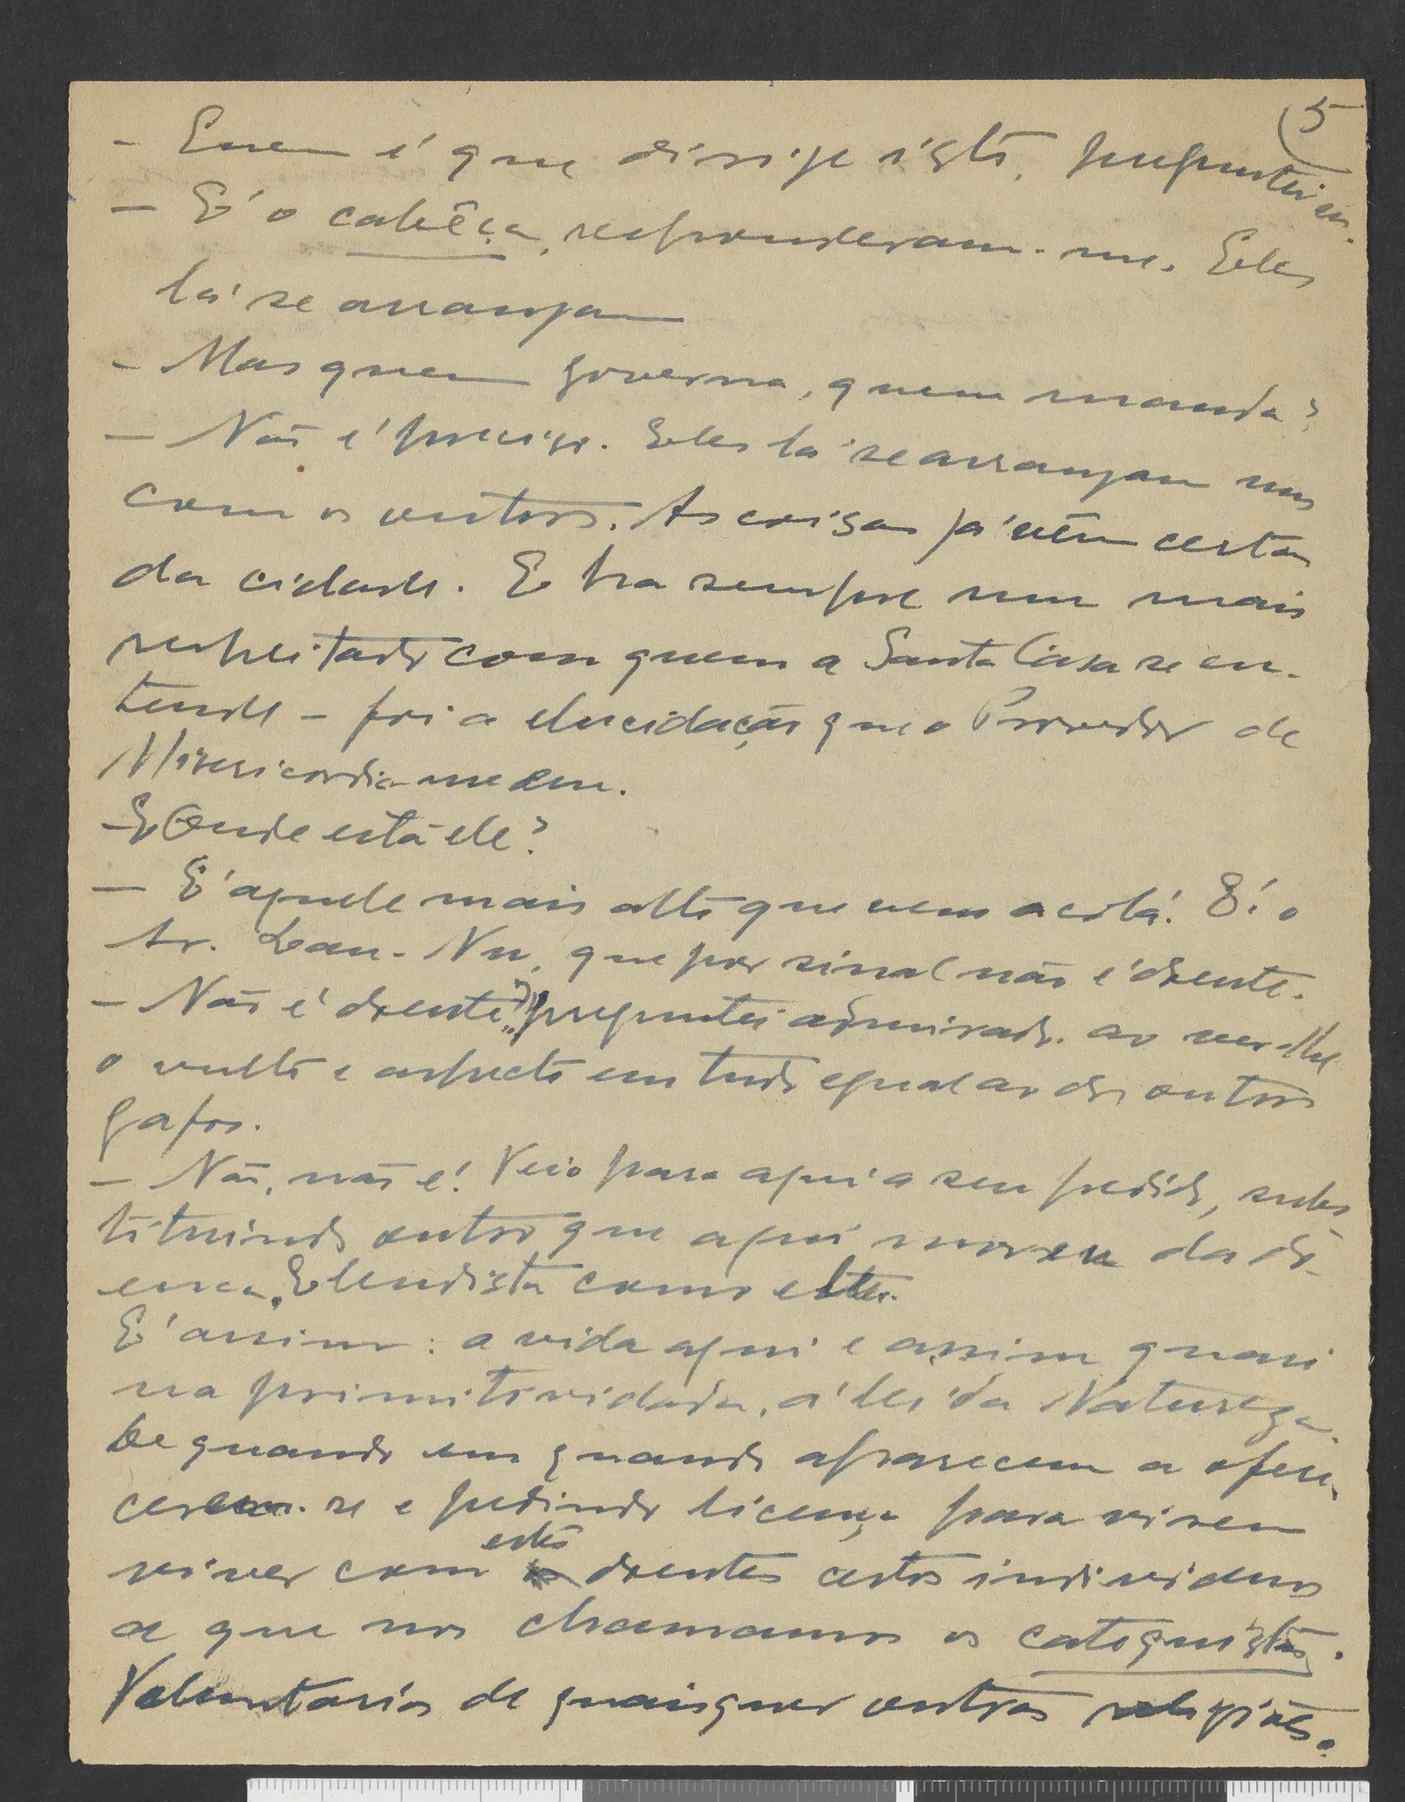 5
- Quem é que dirige isto, preguntei eu.
- É o cabêça, responderam-me. Eles
lá se arranjam
- Mas quem governa, quem manda?
- Não é preciso. Eles lá se arranjam uns
com os outros. As coisas já vêm certas
da cidade. E ha sempre um mais
respeitado com quem a Santa Casa se en-
tende - foi a elucidação que o Provedor de
Misericordia me deu.
- E Onde está ele?
- É aquele mais alto que vem acolá. É o
Lau-Nu, que por sinal não é doente.
- Não é doente? preguntei admirado ao ver-lhe
o vulto e aspecto em tudo egual ao dos outros
gafos.
- Não, não é! Veio para aqui a seu pedido, subs-
tituindo outro que aqui morreu da do-
ença. Budista como este.
É assim: a vida aqui e assim quasi
na primitividade, á lei da Natureza.
De quando em quando aparecem a ofere-
cerem-se e pedindo licença para virem
viver com estes doentes certos individuos
a que nos chamamos os catequistas.
Voluntarios de quaisquer outras religiões.